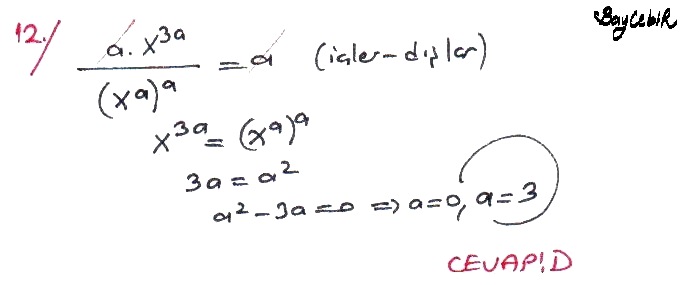 BayCebiR
12.) a.x^3a / (x^a)^a = a (içler-dışlar)
x^3a = (x^a)^a
3a = a^2
a^2 - 3a = 0 => a=0, a=3
CEVAP: D